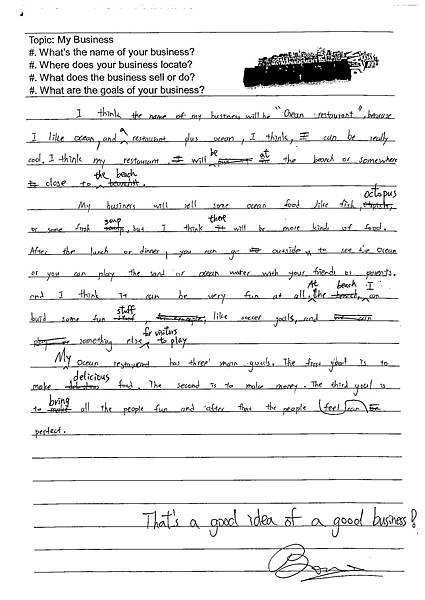 Topic: My Business
#. What's the name of your business?
#. Where does your business locate?
#. What does the business sell or do?
#. What are the goals of your business?
I think the name of my business will be "Ocean restaurant", because
I like ocean, and restaurant plus ocean, I think, It can be really
cool. I think my restaurant will be at the beach or somewhere
close to the beach.
My business will sell some ocean food like fish, octopus
or some fish soup, but I think there will be more kinds of food.
After the lunch or dinner, you can go outside, to see the ocean
or you can play the sand or ocean water with your friends or parents.
and I think It can be very fun at all. At the beach, I can
build some fun stuff, like soccer goals, and
something else for visitors to play
My Ocean restaurant has three main goals. The first goal is to
make delicious food. The second is to make money. The third goal is
to bring all the people fun and after that the people feel
perfect.
That's a good idea of a good business!